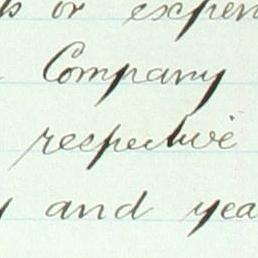 or expen
Company
respective
and yea